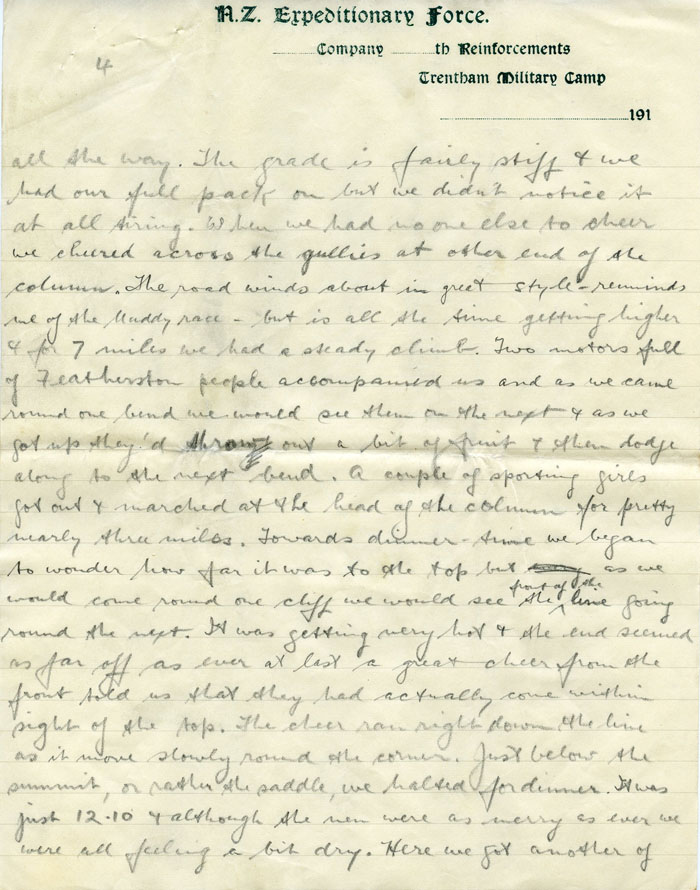 N.Z. Expeditionary Force.
Company th Reinforcements
Trentham Military Camp
191
4
all the way. The grade is fairly stiff & we
had our full pack on but we didn't notice it
at all tiring. When we had no one else to cheer
we cheered across the gullies at other end of the
column. The road winds about in great style - reminds
me of the Muddy race - but is all the time getting higher
& for 7 miles we had a steady climb. Two motors full
of Featherston people accompanied us and as we came
round one bend we would see them on the next & as we
got up they'd throw out a bit of fruit & then dodge
along to the next bend. A couple of sporting girls
got out & marched at the head of the column for pretty
nearly three miles. Towards dinner-time we began
to wonder how far it was to the top but as we
would come round one cliff we would see the front of the line going
round the next. It was getting very hot & the end seemed
as far off as ever at last a great cheer from the
front told us that they had actually come within
sight of the top. The cheer ran right down the line
as it move slowly round the corner. Just below the
summit, or rather the saddle, we halted for dinner. It was
just 12.10 & although the men were as merry as ever we
were all feeling a bit dry. Here we got another of